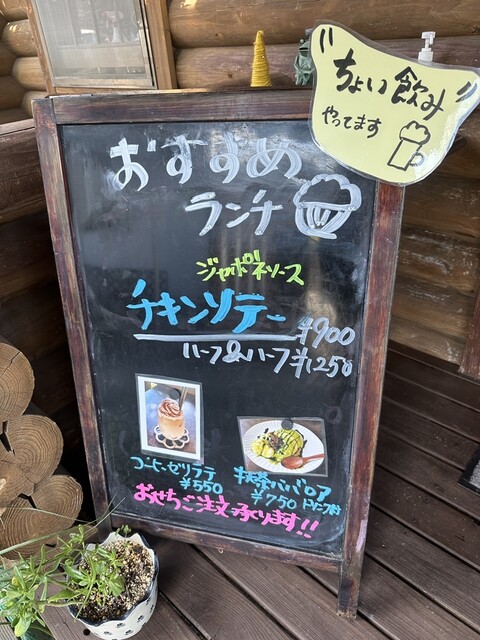 "ちょい飲み"
やってます
おすすめ
ランチ
ジャポネソース
チキンソテー
¥900
ハーフ&ハーフ ¥1250
コーヒーゼリラテ
¥550
抹茶ババロア
¥750 ドリンク付
おせちご注文承ります!!